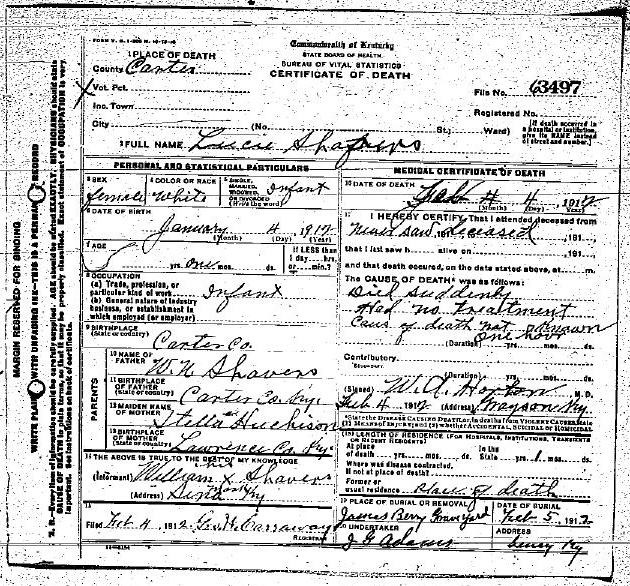 Commonwealth of Kentucky
STATE BOARD OF HEALTH
BUREAU OF VITAL STATISTICS
CERTIFICATE OF DEATH
1 PLACE OF DEATH
County Carter
Vot. Pct.
Inc. Town
City (No. St.; Ward)
File No. 63497
Registered No.
[If death occurred in a hospital or institution, give its NAME instead of street and number.]
2 FULL NAME Shavers
PERSONAL AND STATISTICAL PARTICULARS
3 SEX
female
4 COLOR OR RACE
White
5 SINGLE, MARRIED, WIDOWED, OR DIVORCED (Write the word)
Infant
6 DATE OF BIRTH
January 4, 1912
(Month) (Day) (Year)
7 AGE
yrs. one mos. ds.
If LESS than 1 day hrs. or min.?
8 OCCUPATION
(a) Trade, profession, or particular kind of work
Infant
(b) General nature of industry business, or establishment in which employed (or employer)
9 BIRTHPLACE
(State or country)
Carter Co.
PARENTS
10 NAME OF FATHER
W. N. Shavers
11 BIRTHPLACE OF FATHER
(State or country)
Carter Co. Ky.
12 MAIDEN NAME OF MOTHER
Stella Huchison
13 BIRTHPLACE OF MOTHER
(State or country)
Lawrence Co. Ky.
14 THE ABOVE IS TRUE TO THE BEST OF MY KNOWLEDGE
(Informant) William his x Shavers
(Address) Ky
15
Filed Feb 4, 1912 Geo. H. Carraway
REGISTRAR
MEDICAL CERTIFICATE OF DEATH
16 DATE OF DEATH
Feb 4 4, 1912
(Month) (Day) (Year)
17 I HEREBY CERTIFY, That I attended deceased from
never saw deceased, 191
that I last saw h alive on , 191
and that death occured, on the date stated above, at m.
The CAUSE OF DEATH* was as follows:
Died suddenly
Had no treatment
Caus of death not known
one hour
(Duration) yrs. mos. ds.
Contributory
(Duration) yrs. mos. ds.
(Signed) W. A. Horton M.D.
Feb 4 1912 (Address) Grayson Ky.
*State the DISEASE CAUSING DEATH, or, in deaths from VIOLENT CAUSES, state (1) MEANS OF INJURY; and (2) whether ACCIDENTAL, SUICIDAL OR HOMICIDAL.
18 LENGTH OF RESIDENCE (FOR HOSPITALS, INSTITUTIONS, TRANSIENTS OR RECENT RESIDENTS)
At place of death yrs. mos. ds. In the State yrs. 1 mos. ds.
Where was disease contracted, If not at place of death?
Former or usual residence Place of death
19 PLACE OF BURIAL OR REMOVAL
James Berry Graveyard
DATE OF BURIAL
Feb 5, 1912
20 UNDERTAKER
J G Adams
ADDRESS
Ky
MARGIN RESERVED FOR BINDING
WRITE PLAINLY WITH UNFADING INK—THIS IS A PERMANENT RECORD